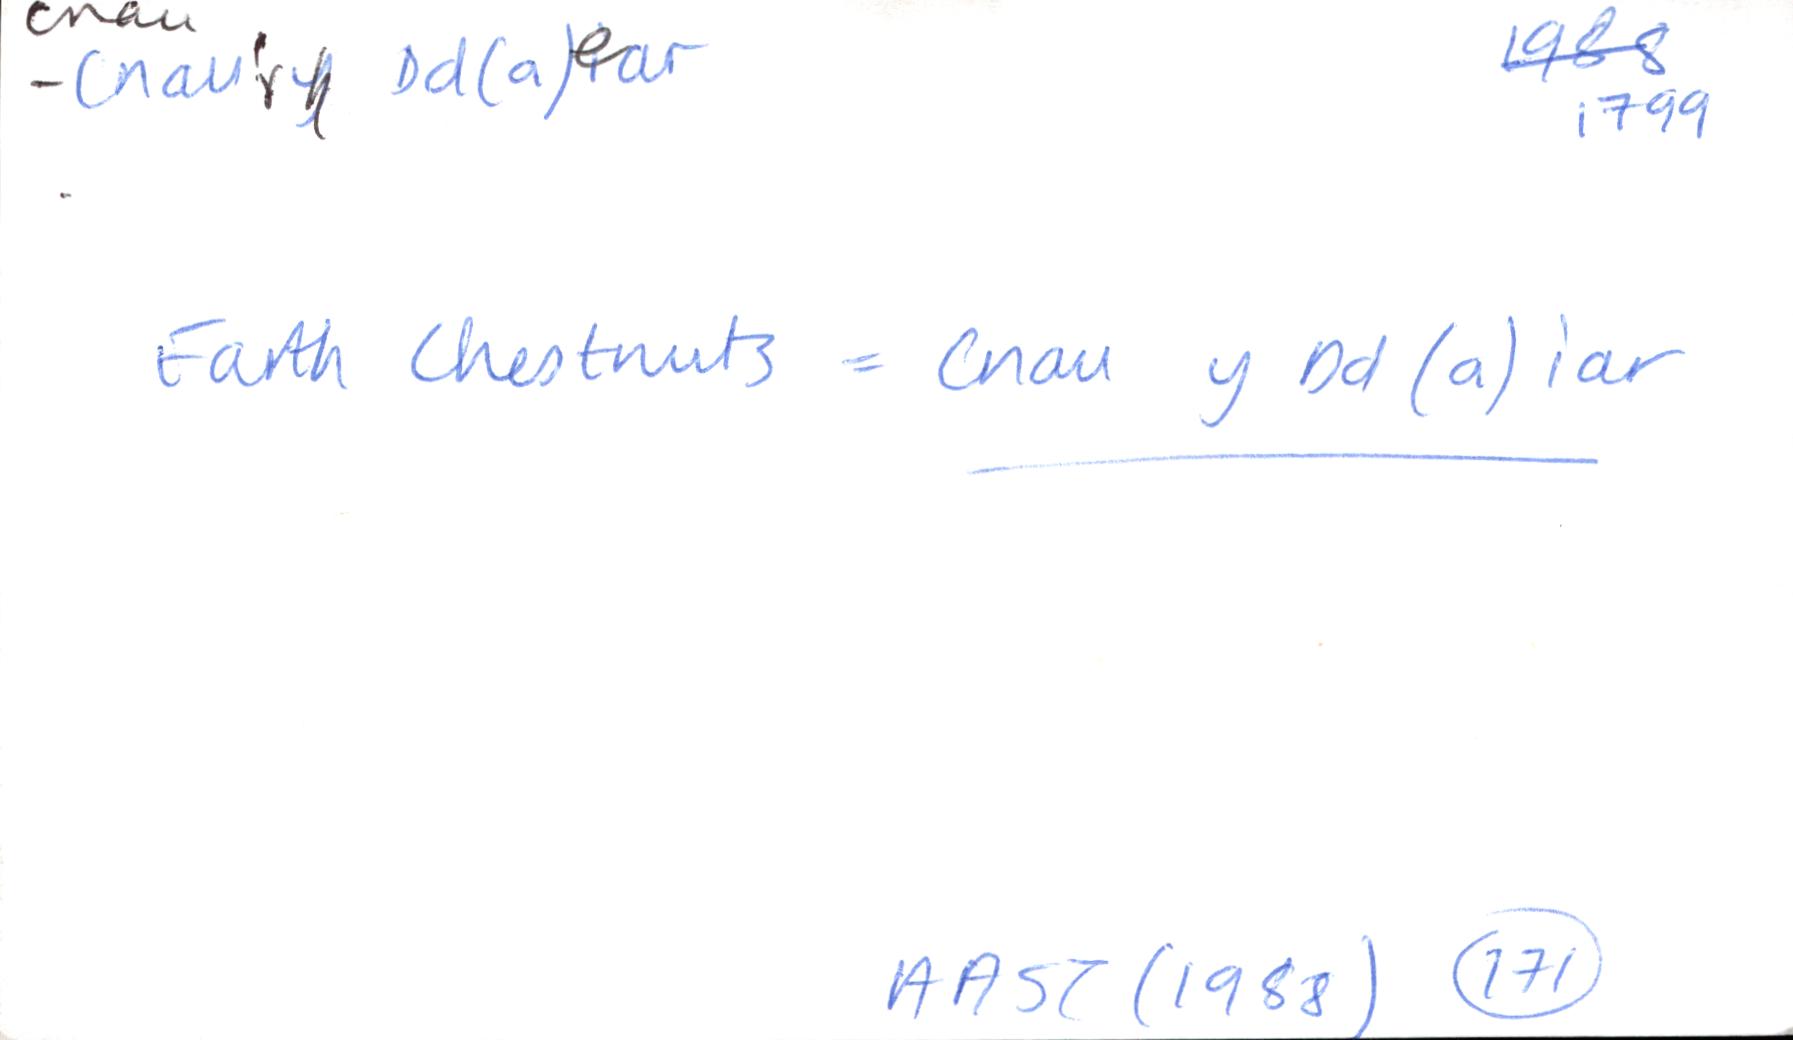 cnau
- Cnau'r y Dd(a)ear
1988
1799
Earth Chestnuts = Cnau y Dd(a)iar
AAST (1988) 171